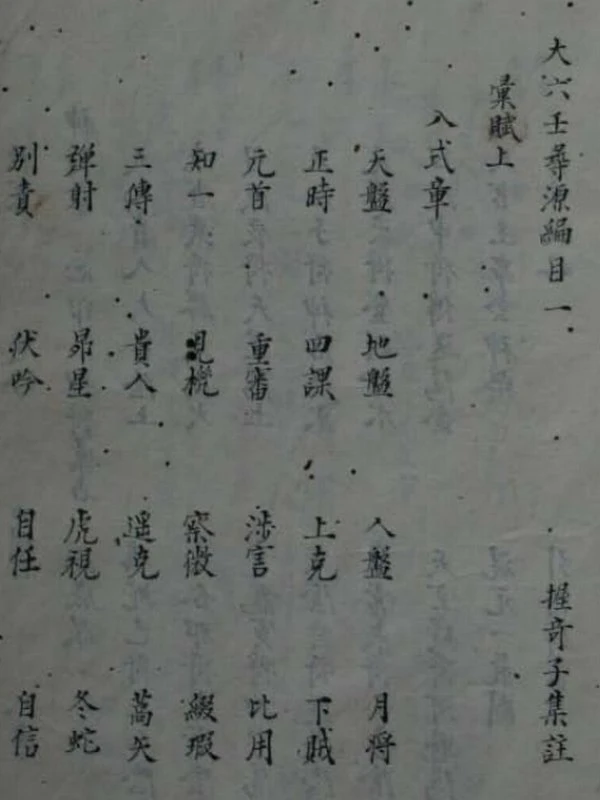 大六壬尋源編目一 握奇子集註
彙賦上
入式章
天盤 地盤 人盤 月将
正時 四課 上克 下賊
元首 重審 涉害 比用
知一 見機 察微 綴瑕
三傳 貴人 遥克 蒿矢
弹射 昴星 虎視 冬蛇
別責 伏吟 自任 自信